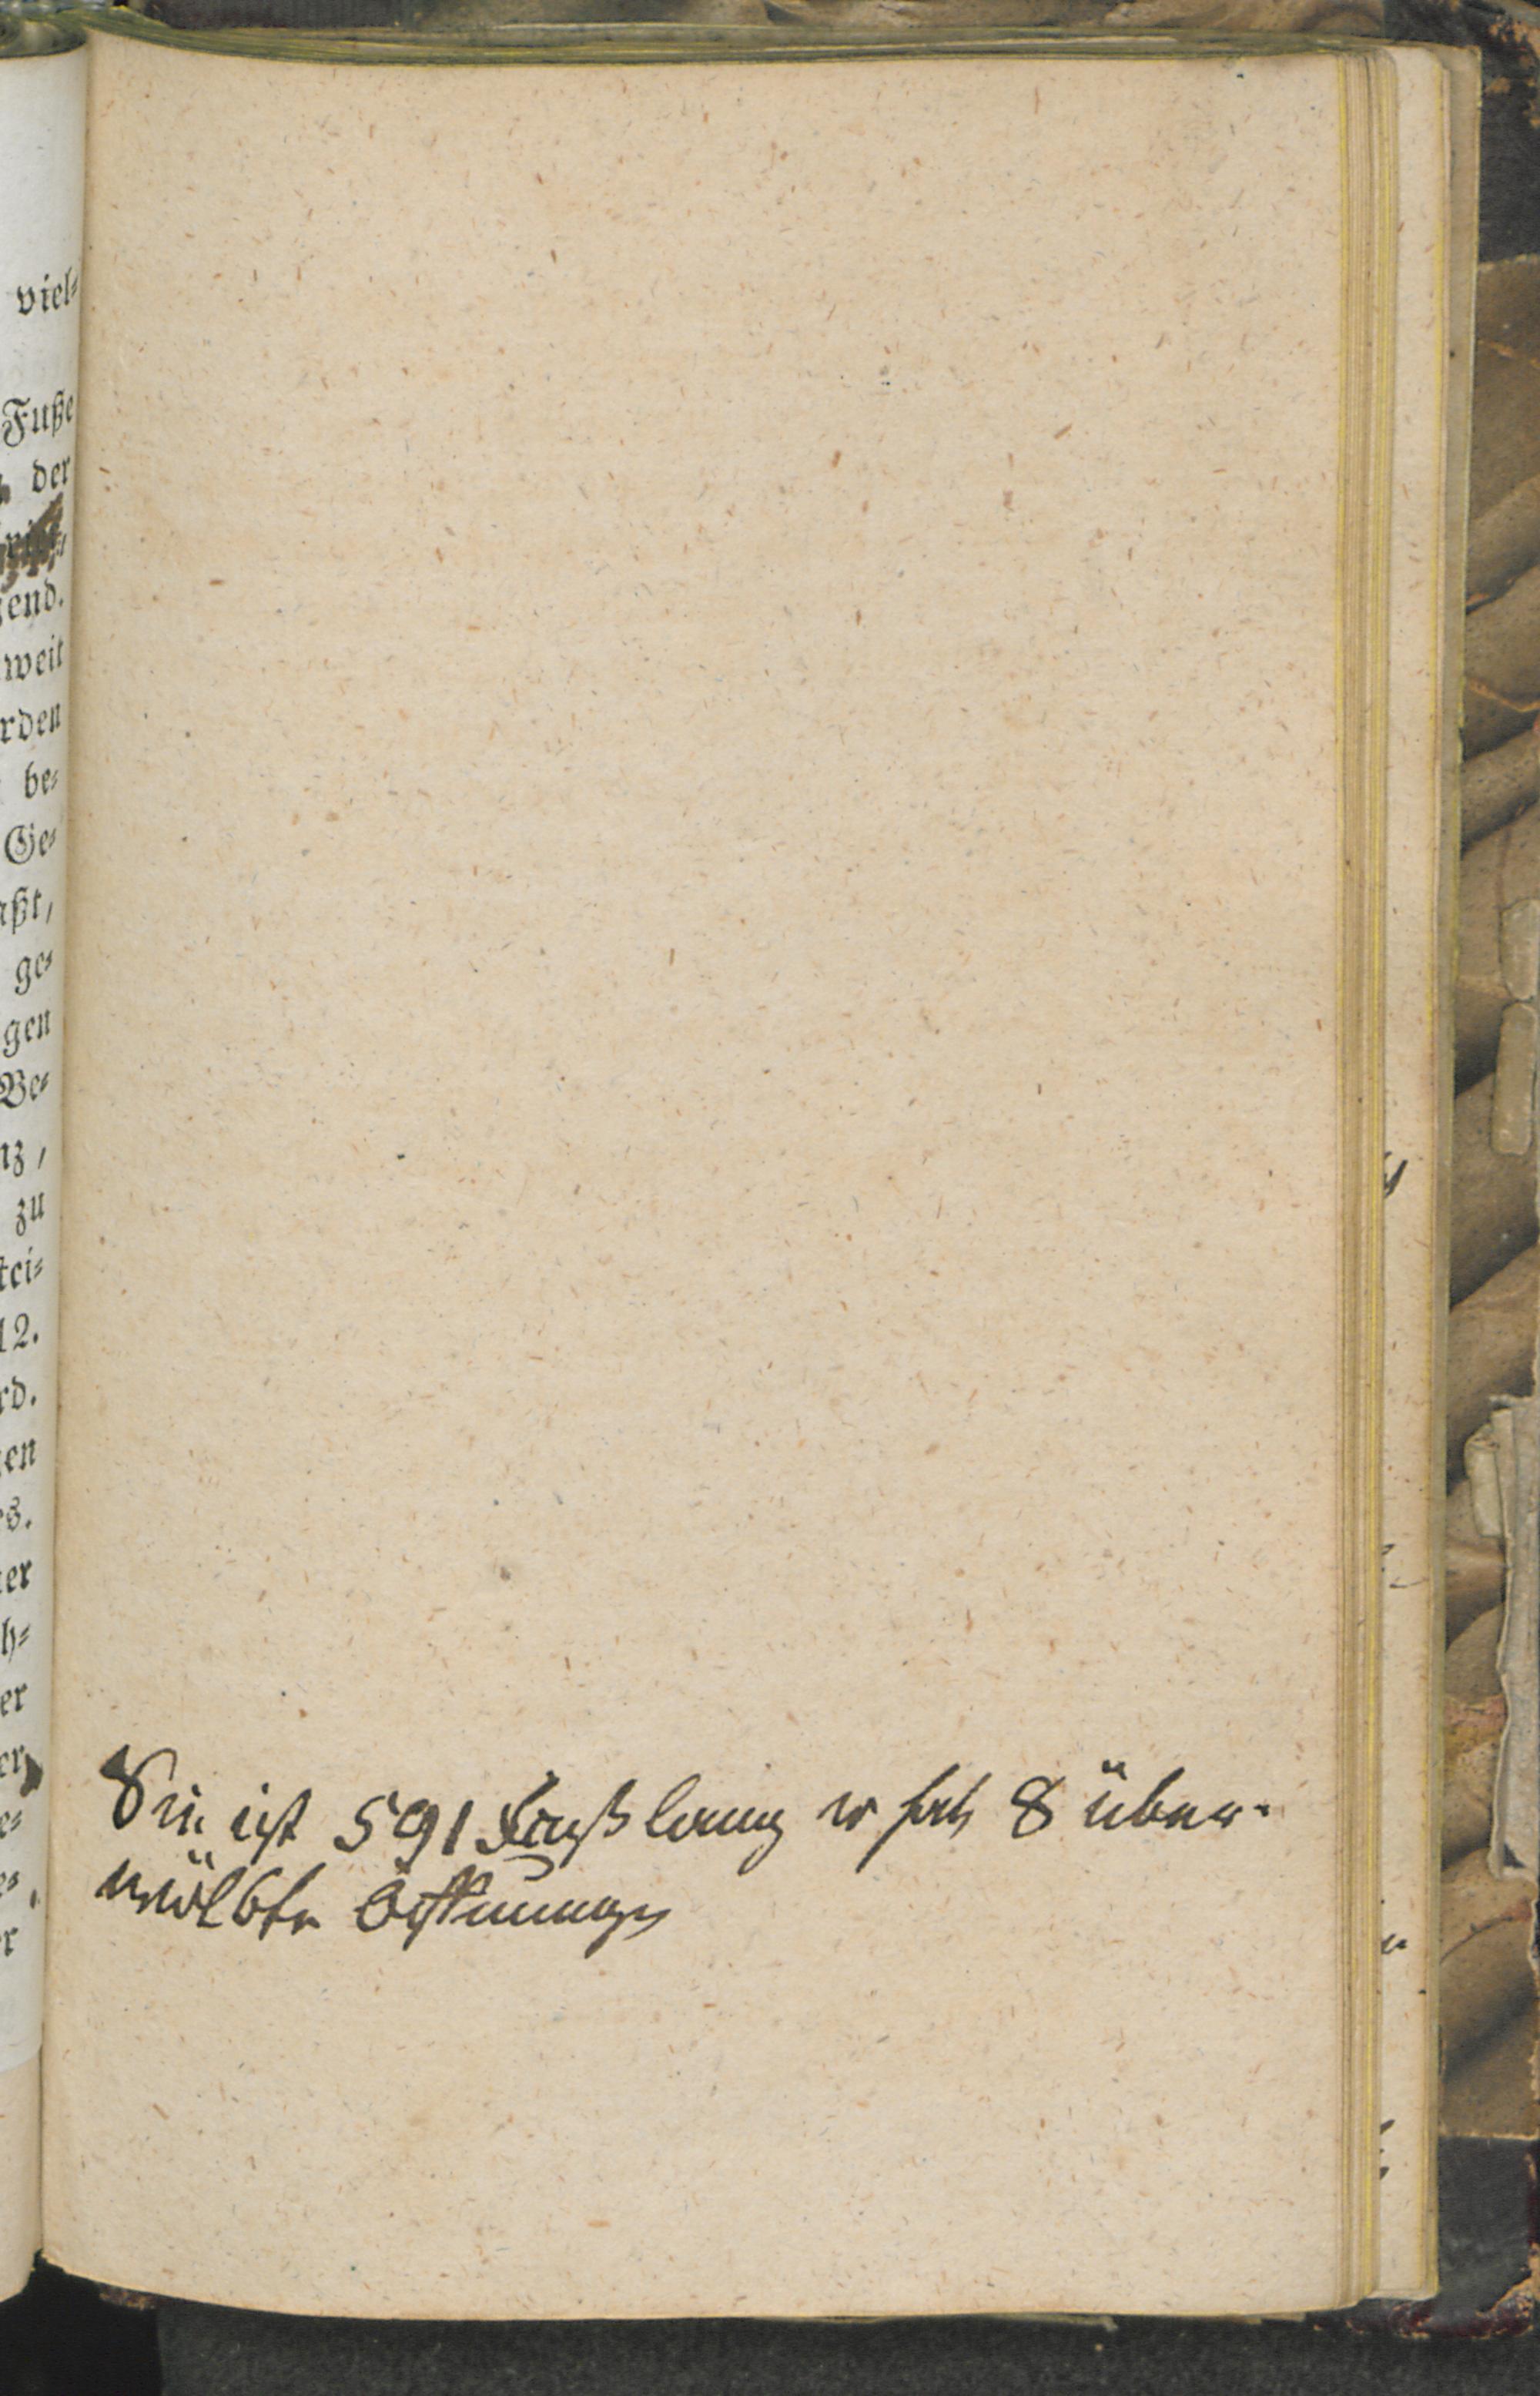 viel=
Fuße
der
end.
weit
rden
be=
Ge=
aßt,
ge=
gen
Be=
nz,
zu
tei=
12.
rd.
en
es.
er
h=
er
er
e=
e=
r
Sie ist 591 Fuß lang u hat 8 überw=
wölbte Öffnungen